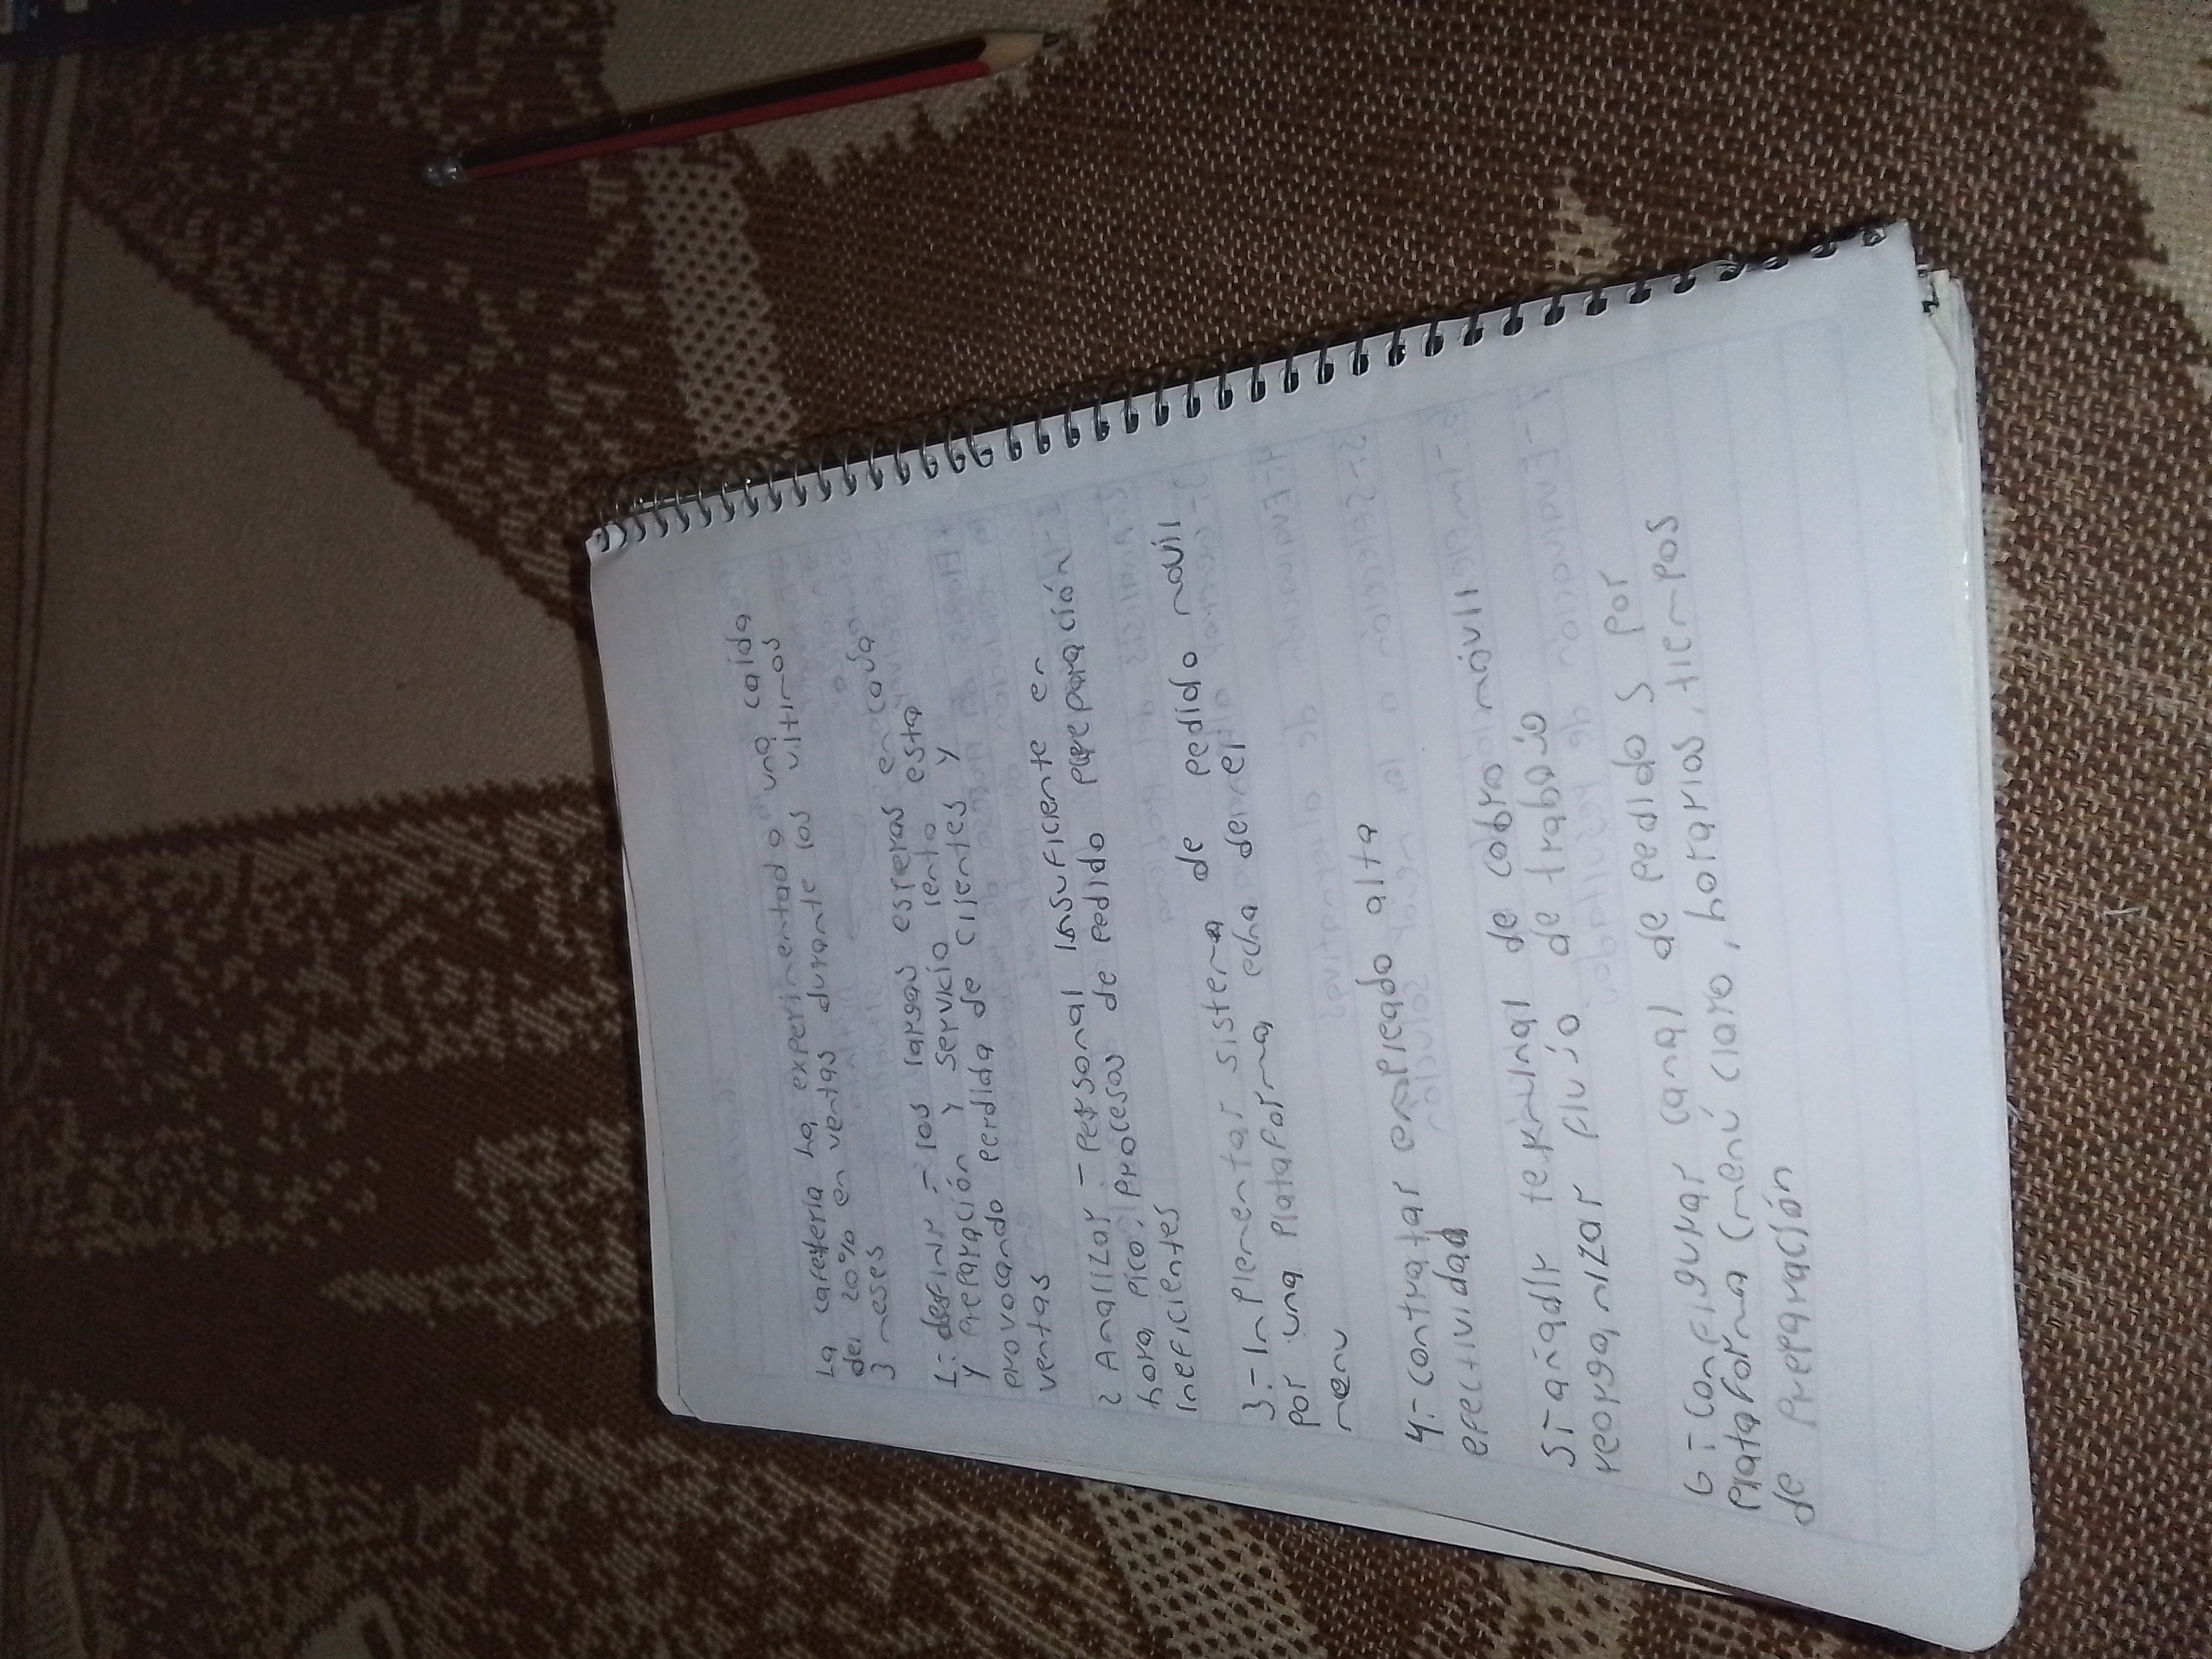 La cafetería ha experimentado una caída
del 20% en ventas durante los ultimos
3 meses
1.- definir = las largas esperas en caja
y preparación y servicio lento esta
provocando perdida de clientes y
ventas
2 Analizar - Personal insuficiente en
hora pico, procesos de pedido preparación
ineficientes
3.- Inplementar sistema de pedido movil
por una plataforma, echa del el
menu
4.- contratar empleado alta
efectividad
5- añadir terminal de cobro móvil
reorganizar flujo de trabajo
6- Configurar canal de pedidos por
plataforma (menú claro, horarios, tiempos
de preparación